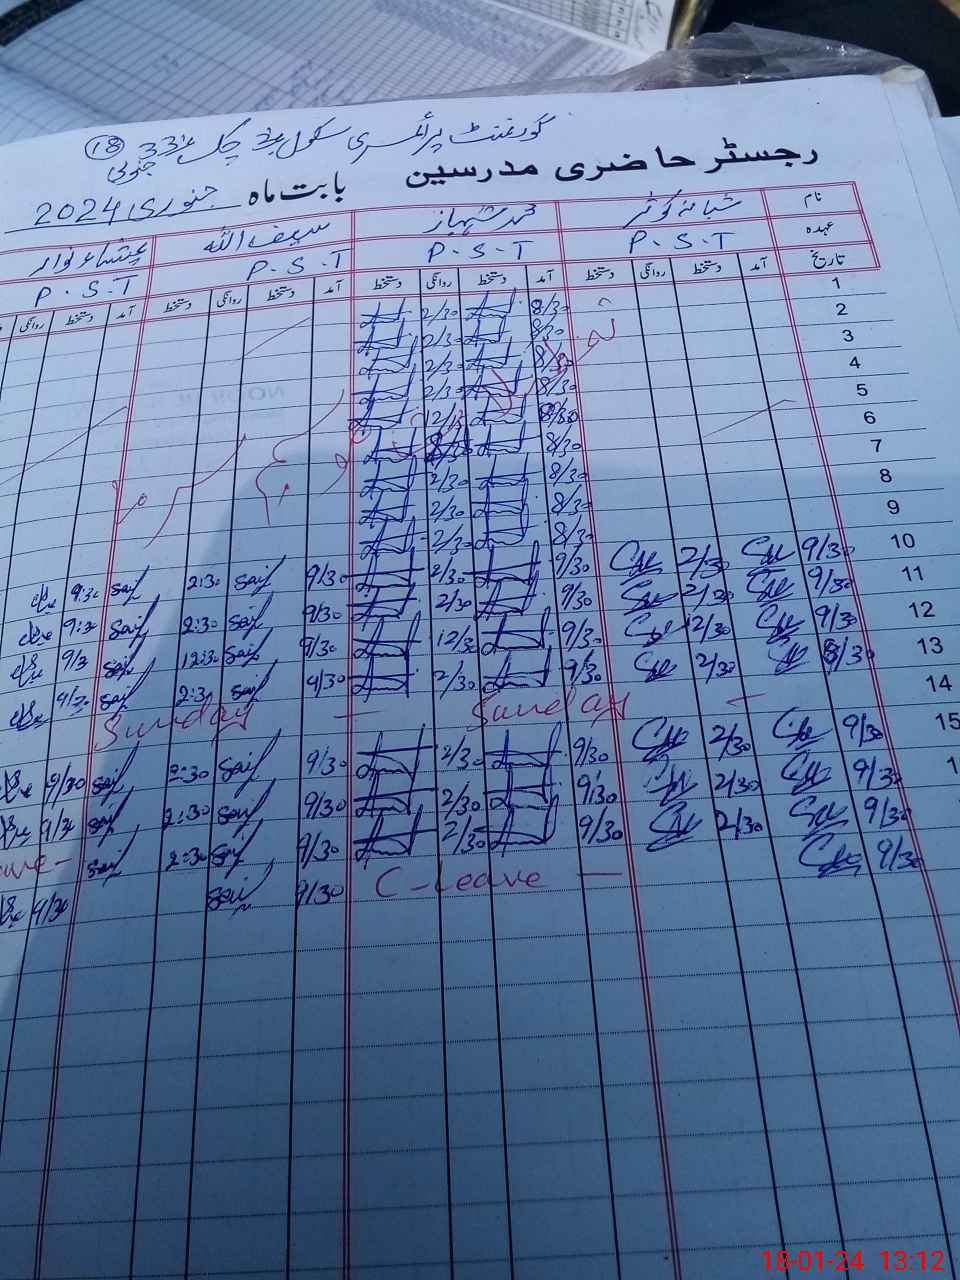 گورنمنٹ پرائمری سکول چک 33 جنوبی
18
رجسٹر حاضری مدرسین بابت ماہ جنوری 2024
نام شبانہ کوثر محمد شہباز سیف اللہ
عہدہ P.S.T P.S.T P.S.T P.S.T
تاریخ آمد دستخط روانگی دستخط آمد دستخط روانگی دستخط آمد دستخط روانگی دستخط آمد دستخط روانگی
1
2 8/30 2/30
3 8/30 2/30
4 8/30 2/30
5 8/30 2/30
6 8/30
7 8/30
8 8/30 2/30
9 8/30 2/30
10 9/30 2/30 9/30 2/30 9/30 Saif 2:30 Saif 9:30
11 9/30 2/30 9/30 2/30 9/30 Saif 2:30 Saif 9:30
12 9/30 12/30 9/30 12/30 9/30 Saif 12:30 Saif 9/30
13 2/30 9/30 2/30 9/30 Saif 2:30 Saif 9/30
14 Sunday Sunday
15 9/30 2/30 9/30 2/30 9/30 Saif 2:30 Saif 9/30
9/30 2/30 9/30 2/30 9/30 Saif 2:30 Saif 9/30
9/30 2/30 9/30 2/30 9/30 Saif 2:30 Saif
9/30 C-Leave 9/30 Saif 9/30
18-01-24 13:12